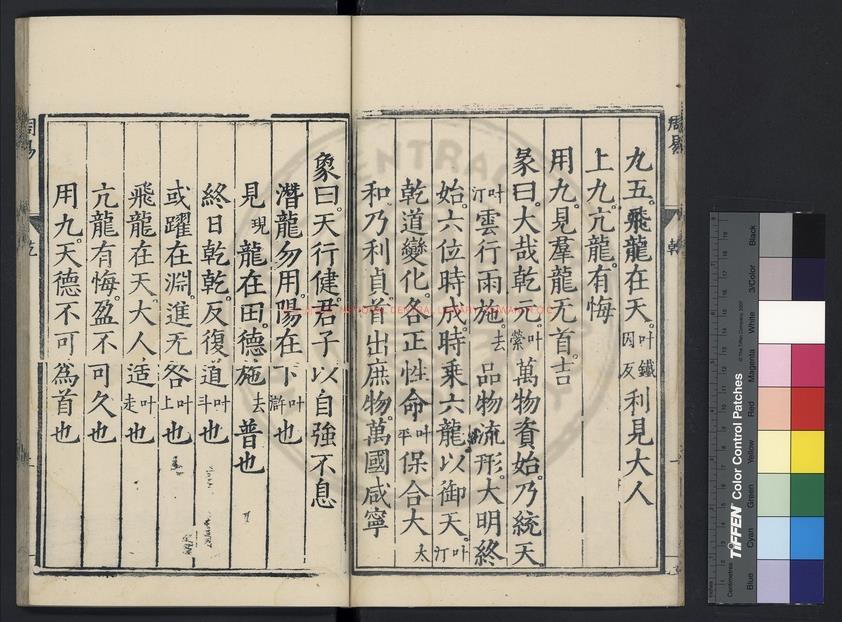 周易
乾
九五。飛龍在天。叶鐵因反利見大人
上九。亢龍。有悔
用九。見羣龍无首。吉
彖曰。大哉乾元。叶縈萬物資始。乃統天。
叶汀雲行雨施。去品物流形。大明終
始。六位時成。時乘六龍以御天。叶汀
乾道變化。各正性命叶平保合大太
和乃利貞。首出庶物。萬國咸寧
象曰。天行健。君子以自強不息
潛龍勿用。陽在下叶滸也
見現龍在田。德施去普也
終日乾乾。反復道叶斗也
或躍在淵。進无咎叶上也
飛龍在天。大人造叶走也
亢龍有悔。盈不可久也
用九。天德不可為首也
周易
乾
NATIONAL CENTRAL LIBRARY
TIFFEN Color Control Patches
© The Tiffen Company, 2007
Centimetres
Inches
Blue
Cyan
Green
Yellow
Red
Magenta
White
3/Color
Black